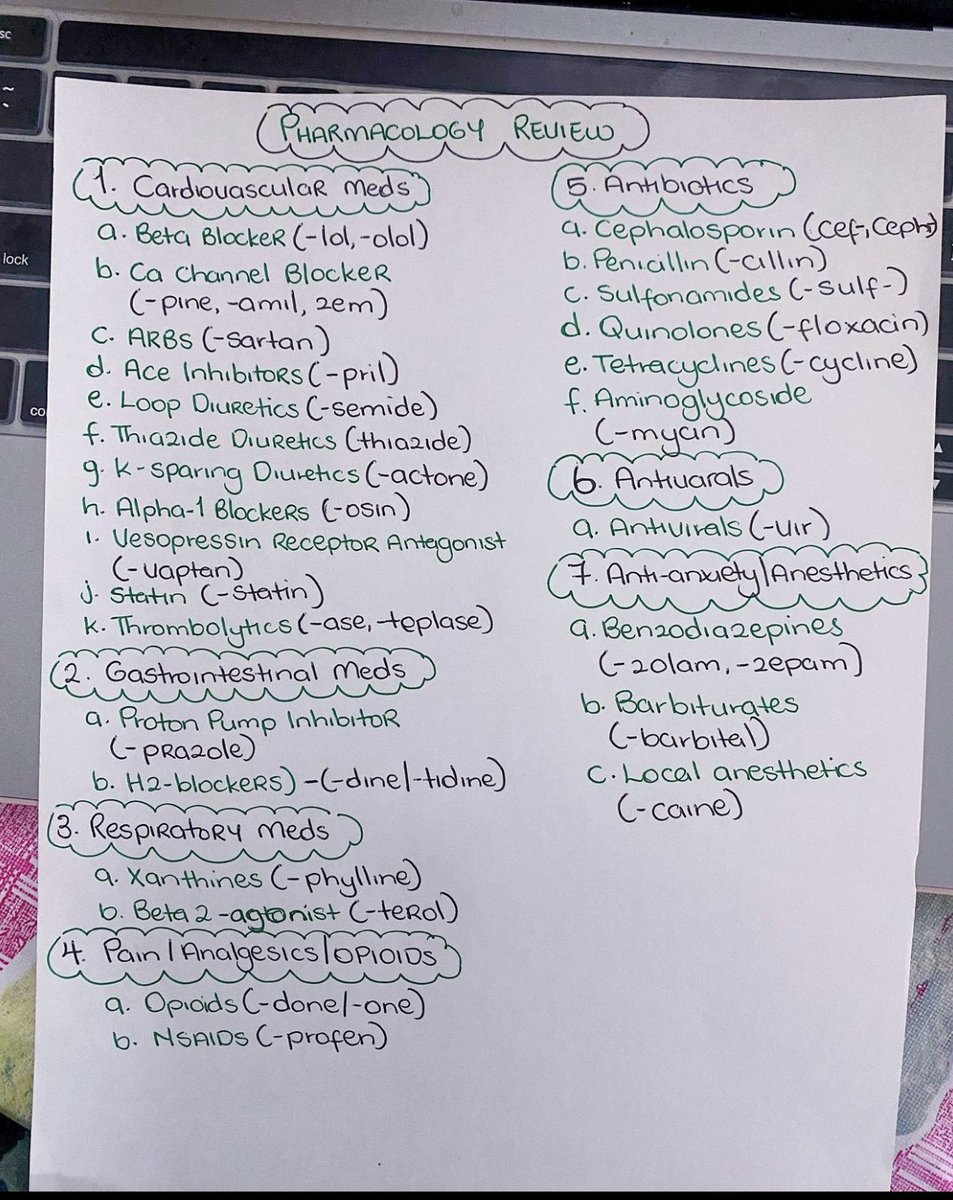 PHARMACOLOGY REVIEW
1. Cardiovascular Meds
a. Beta Blocker (-lol, -olol)
b. Ca Channel Blocker
(-pine, -amil, zem)
C. ARBs (-sartan)
d. Ace Inhibitors (-pril)
e. Loop Diuretics (-semide)
f. Thiazide Diuretics (thiazide)
g. K-sparing Diuretics (-actone)
h. Alpha-1 Blockers (-osin)
i. Vesopressin Receptor Antagonist
(-vaptan)
j. Statin (-statin)
k. Thrombolytics (-ase, -teplase)
2. Gastrointestinal Meds
a. Proton Pump Inhibitor
(-prazole)
b. H2-blockers) -(-dine/-tidine)
3. Respiratory Meds
a. Xanthines (-phylline)
b. Beta 2 -agtonist (-terol)
4. Pain/Analgesics/Opioids
a. Opioids (-done/-one)
b. NSAIDS (-profen)
5. Antibiotics
a. Cephalosporin (cef-, ceph)
b. Penicillin (-cillin)
c. Sulfonamides (-sulf-)
d. Quinolones (-floxacin)
e. Tetracyclines (-cycline)
f. Aminoglycoside
(-mycin)
6. Antivarals
a. Antivirals (-vir)
7. Anti-anxiety/Anesthetics
a. Benzodiazepines
(-zolam, -zepam)
b. Barbiturates
(-barbital)
c. Local anesthetics
(-caine)
sc
~
lock
co